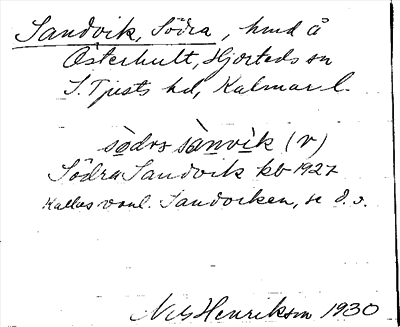 Sandvik, Södra, hmd å
Österhult, Hjorteds sn
S. Tjusts hd, Kalmar l.
södrs sànvìk (v)
Södra Sandvik kb 1927
Kallas vanl. Sandviken, se d. o.
Nils Henrikson 1930